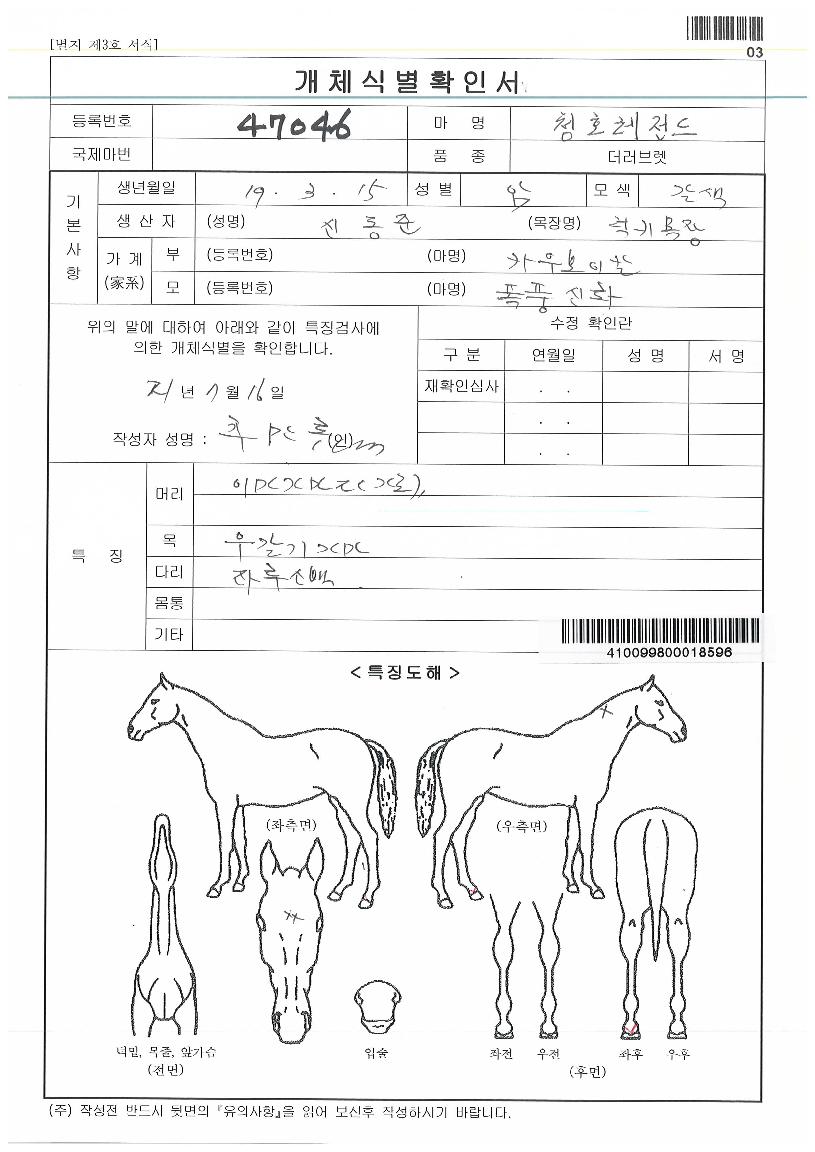 [별지 제3호 서식]
03
개체식별확인서
등록번호 47046 마 명 청호레전드
국제마번 품 종 더러브렛
기본사항
생년월일 19 . 3 . 15 성 별 암 모 색 갈색
생 산 자 (성명) 진동준 (목장명)
가 계 (家系) 부 (등록번호) (마명) 카우보이칼
모 (등록번호) (마명) 폭풍신화
위의 말에 대하여 아래와 같이 특징검사에
의한 개체식별을 확인합니다.
수정 확인란
구 분 연월일 성 명 서 명
재확인심사 . .
. .
. .
년 7월 16일
작성자 성명 : (인)
특 징
머리
목
다리
몸통
기타
410099800018596
< 특징도해 >
(좌측면) (우측면)
턱밑, 목줄, 앞가슴 입술 좌전 우전 좌후 우후
(전면) (후면)
(주) 작성전 반드시 뒷면의 『유의사항』을 읽어 보신후 작성하시기 바랍니다.